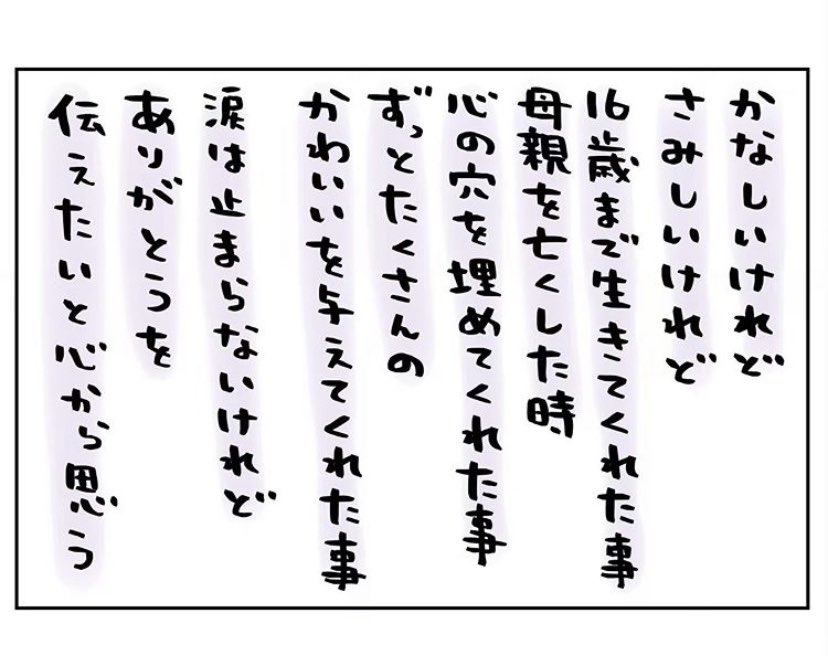 かなしいけれど
さみしいけれど
16歳まで生きてくれた事
母親を亡くした時
心の穴を埋めてくれた事
ずっとたくさんの
かわいいを与えてくれた事
涙は止まらないけれど
ありがとうを
伝えたいと心から思う